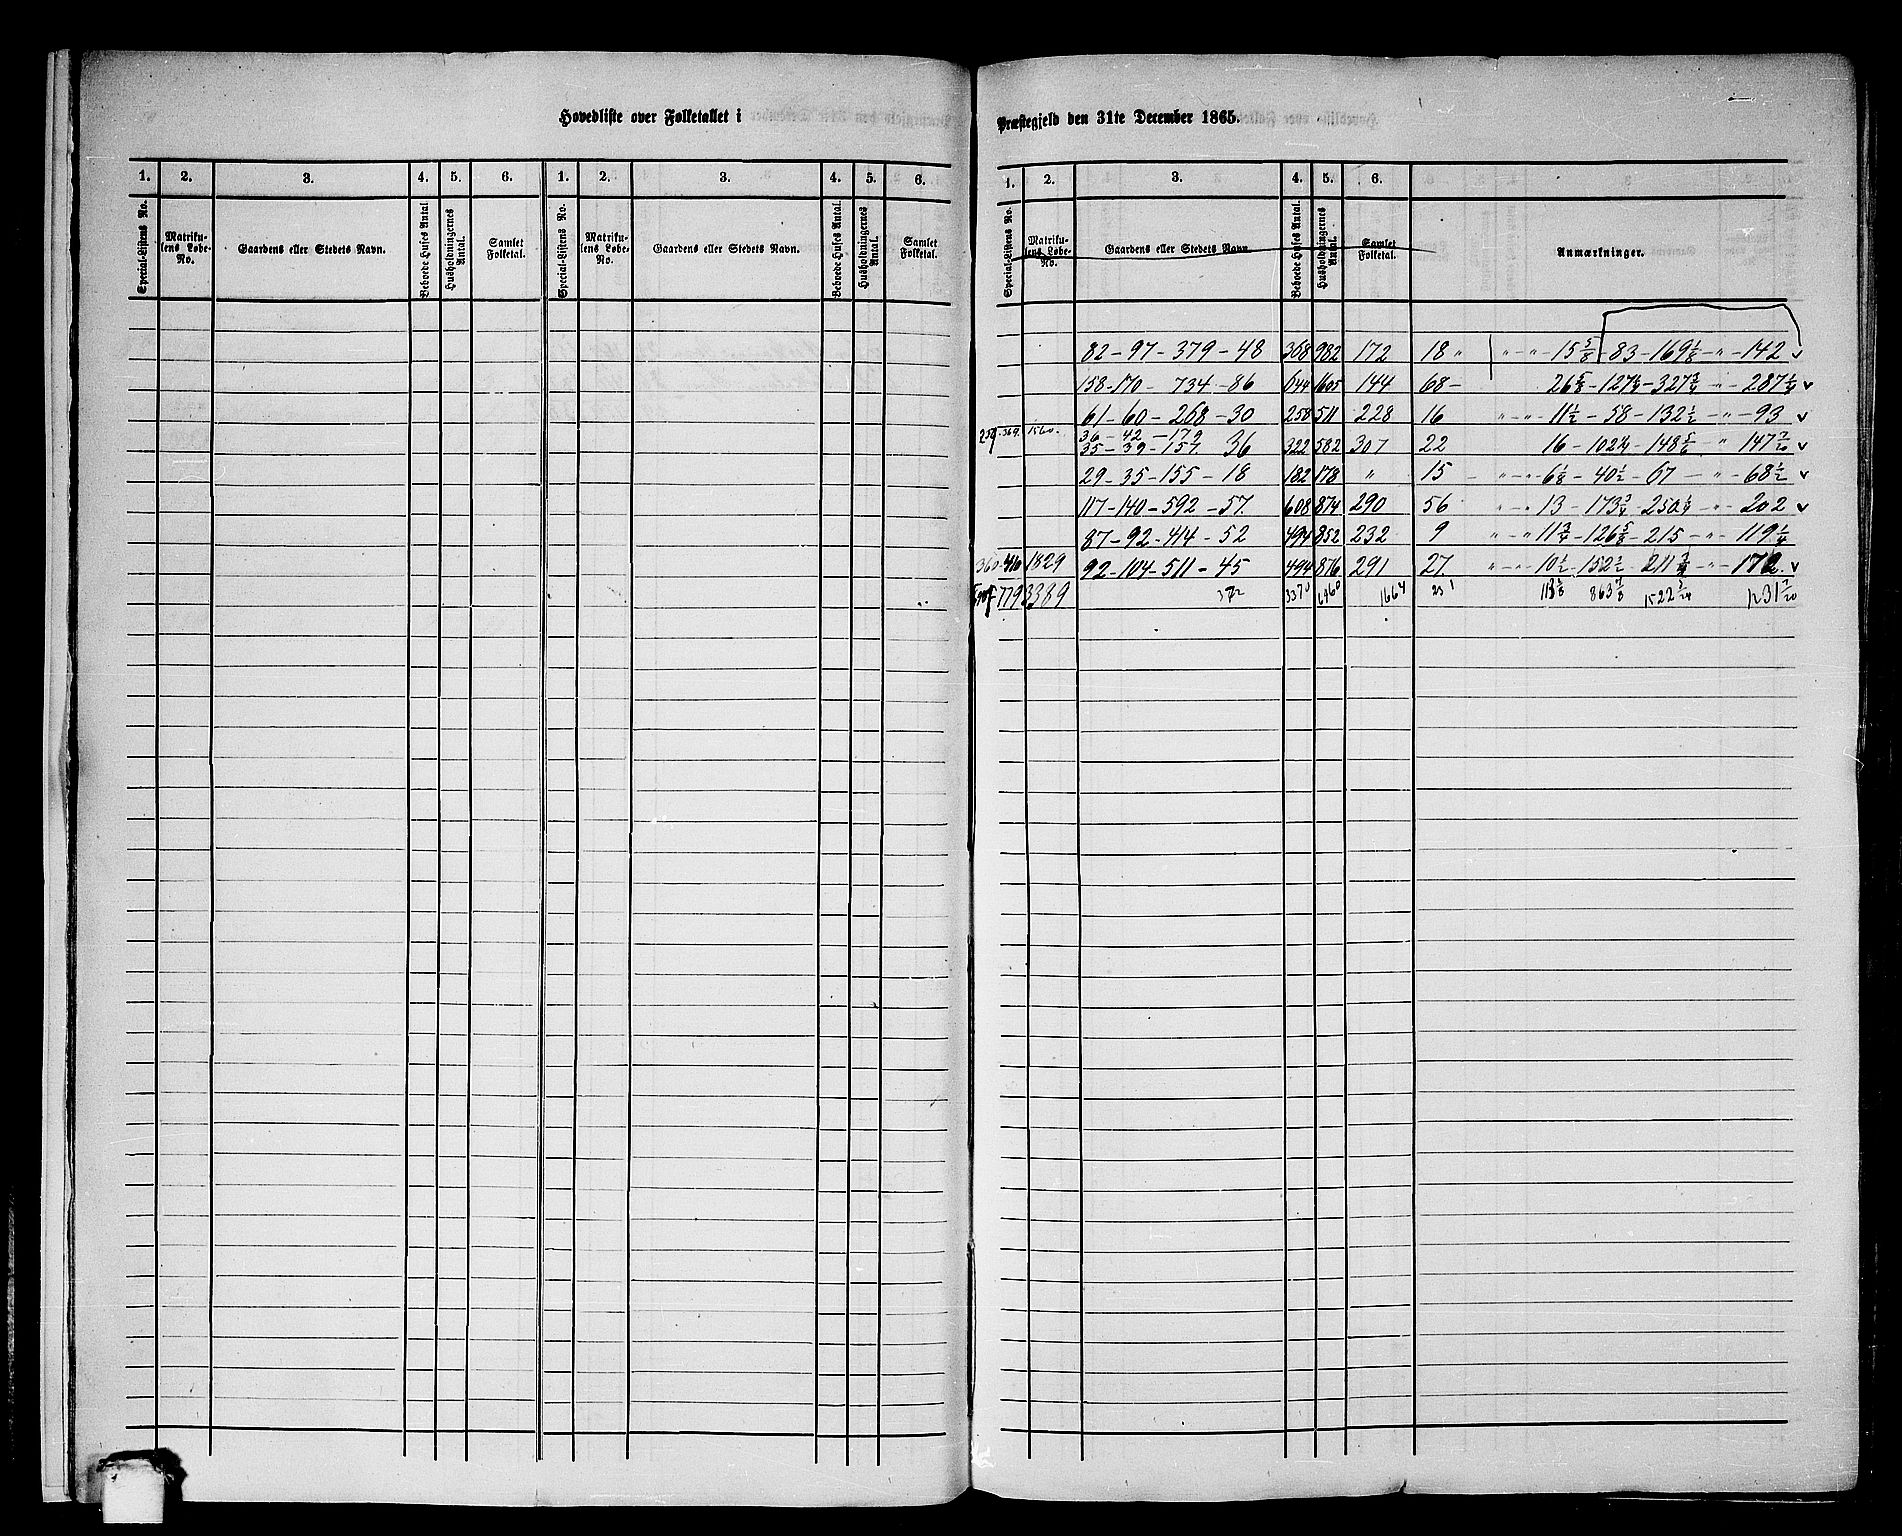 Hovedliste over Folketallet i
1. 2. 3. 4. 5. 6. 1. 2. 3. 4. 5. 6.
Special-Listens No. Matrikulens Løbe-No. Gaardens eller Stedets Navn. Beboede Huses Antal. Husholdningernes Antal. Samlet Folketal. Special-Listens No. Matrikulens Løbe-No. Gaardens eller Stedets Navn. Beboede Huses Antal. Husholdningernes Antal. Samlet Folketal.
Præstegjeld den 31te December 1865.
1. 2. 3. 4. 5. 6.
Special-Listens No. Matrikulens Løbe-No. Gaardens eller Stedets Navn. Beboede Huses Antal. Husholdningernes Antal. Samlet Folketal. Anmærkninger.
82 - 97 - 379 - 48 368 982 172 18 " " - " - 15 5/8 - 83 - 169 1/8 - " - 142 v
158 - 170 - 734 - 86 644 1605 144 68 - 26 5/8 - 127 - 327 3/4 " - 287 1/4 v
61 - 60 - 268 - 30 258 511 228 16 " - " - 11 1/2 - 58 - 132 1/2 - " - 93 v
369. 1560. 36 - 42 - 179
35 - 39 - 157. 36 322 582 307 22 16 - 102 - 148 " 147 v
29 - 35 - 155 - 18 182 178 " 15 - " - " - 6 - 40 1/2 - 67 - " - 68 1/2 v
117 - 140 - 592 - 57. 608 874 290 56 " - " 13 - 173 3/4 - 250 - " - 202 v
87 - 92 - 414 - 52 494 852 232 9 " - " 11 3/4 - 126 5/8 - 215 - " - 119 1/4
360 - 410 1829 92 - 104 - 511 - 45 494 876 291 27. " - " 10 1/2 - 152 1/2 - 211 - " - 172. v
779 3389 372 3370 6460 1664 231 863 1522 1231 7/20